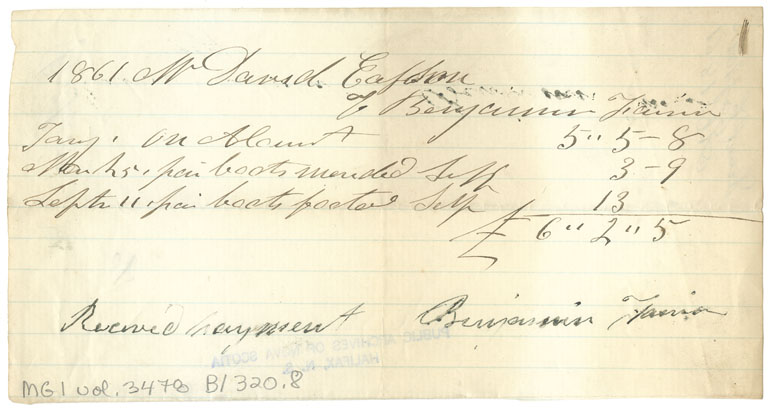 1861. Mr David Eafson
To Benjamin
Jany. on Acount 5 " 5 - 8
1 pair boots mended Self 3 - 9
Septr 11 1 pair boots footed Self 13
£ 6 " 2 " 5
Received payment Benjamin
PUBLIC ARCHIVES OF NOVA SCOTIA
HALIFAX, N. S.
MG1 vol. 3478 B/320.8